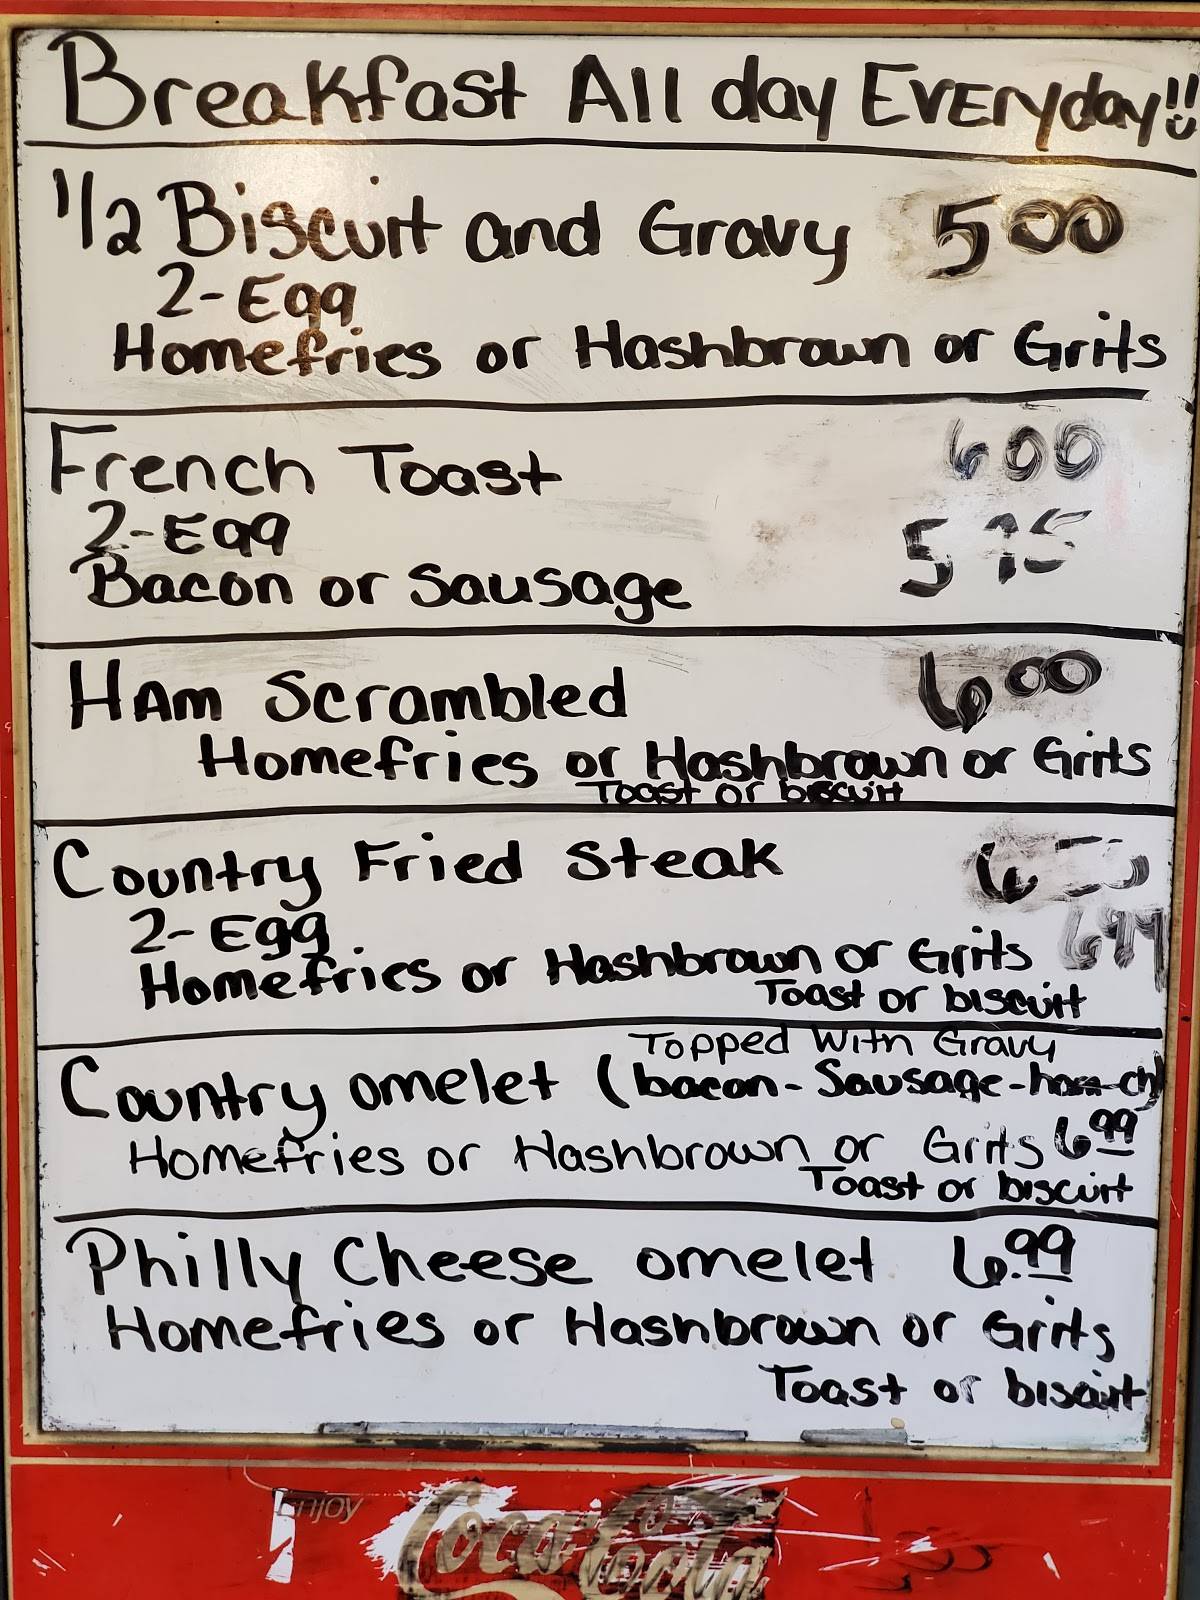 Breakfast All day Everyday!!
1/2 Biscuit and Gravy 5 00
2-Egg
Homefries or Hashbrown or Grits
French Toast 6 00
2-Egg 5
Bacon or Sausage
HAm Scrambled 6 00
Homefries or Hashbrown or Grits
Toast or biscuit
Country Fried Steak
2-Egg 6 99
Homefries or Hashbrown or Grits
Toast or biscuit
Topped With Gravy
Country omelet (bacon-Sausage-ham-ch)
Homefries or Hashbrown or Grits 6 99
Toast or biscuit
Philly Cheese omelet 6.99
Homefries or Hashbrown or Grits
Toast or biscuit
Enjoy
Coca-Cola